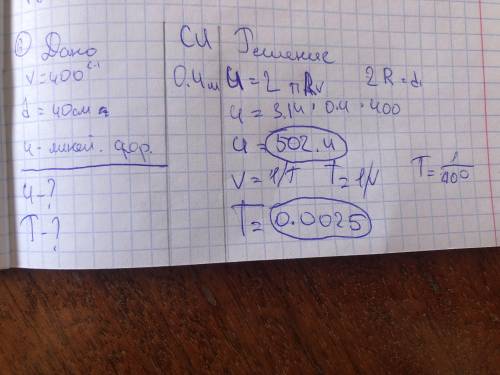 ② Дано
ν=400 с⁻¹
d=40см
u-линей. фор.
u-?
T-?
СИ
0.4м
Решение
u=2πRν 2R=d
u=3.14·0.4·400
u=502.4
ν=1/T T=1/ν T=1/400
T=0.0025